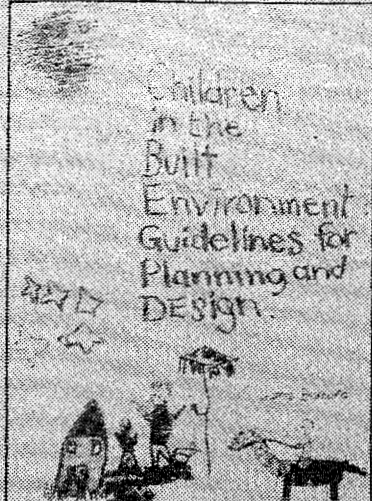 Children
in the
Built
Environment
Guidelines for
Planning and
DEsign.